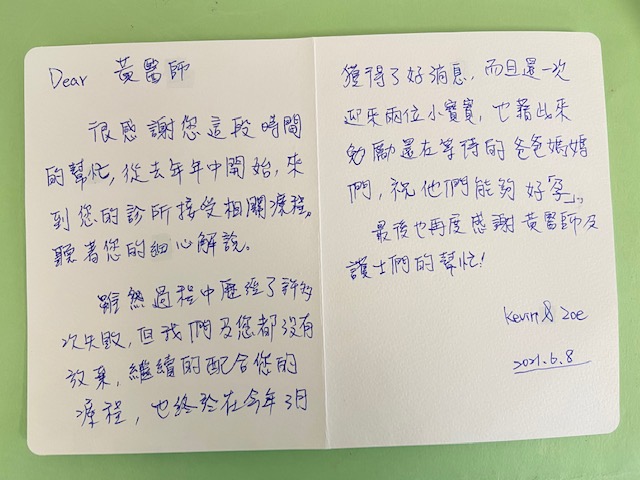 Dear 黃醫師
很感謝您這段時間
的幫忙,從去年年中開始,來
到您的診所接受相關療程,
聽著您的細心解說。
雖然過程中歷經了許多
次失敗,但我們及您都沒有
放棄,繼續的配合您的
療程,也終於在今年3月
獲得了好消息,而且還一次
迎來兩位小寶寶,也藉此來
勉勵還在等待的爸爸媽媽
們,祝他們能夠好「孕」。
最後也再度感謝黃醫師及
護士們的幫忙!
Kevin & Zoe
2021.6.8